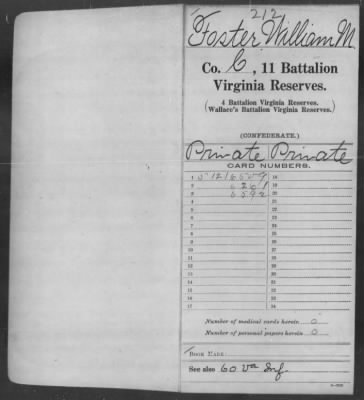 212
Foster, William M.
Co. C, 11 Battalion
Virginia Reserves.
(4 Battalion Virginia Reserves.
Wallace's Battalion Virginia Reserves.)
(CONFEDERATE.)
Private Private
CARD NUMBERS.
1 18
2 6261 19
3 6592 20
4 21
5 22
6 23
7 24
8 25
9 26
10 27
11 28
12 29
13 30
14 31
15 32
16 33
17 34
Number of medical cards herein 0
Number of personal papers herein 0
BOOK MARK:
See also 60 Va Inf.